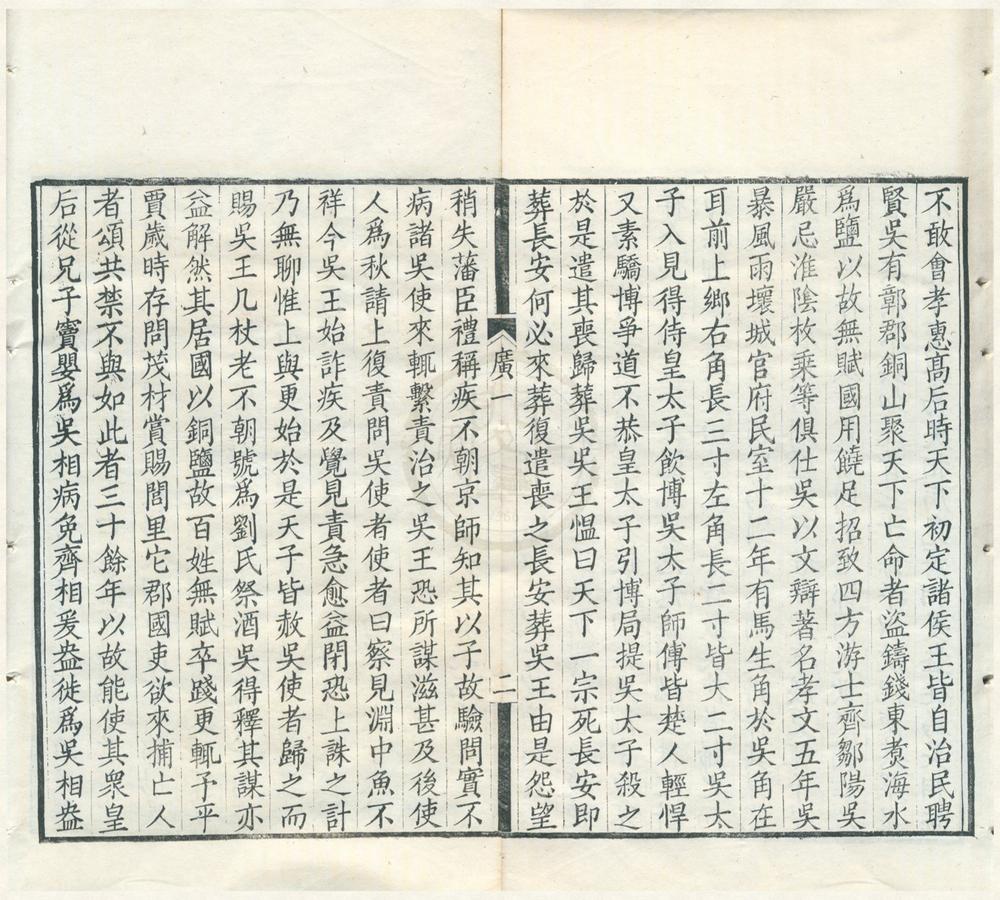 不敢會孝惠髙后時天下初定諸侯王皆自治民聘
賢吳有鄣郡銅山聚天下亡命者盜鑄錢東煑海水
爲鹽以故無賦國用饒足招致四方游士齊鄒陽吳
嚴忌淮陰枚乘等俱仕吳以文辯著名孝文五年吳
暴風雨壞城官府民室十二年有馬生角於吳角在
耳前上鄉右角長三寸左角長二寸皆大二寸吳太
子入見得侍皇太子飲博吳太子師傅皆楚人輕悍
又素驕博爭道不恭皇太子引博局提吳太子殺之
於是遣其喪歸葬吳吳王愠曰天下一宗死長安即
葬長安何必來葬復遣喪之長安葬吳王由是怨望
廣一
二
稍失藩臣禮稱疾不朝京師知其以子故驗問實不
病諸吳使來輒繫責治之吳王恐所謀滋甚及後使
人爲秋請上復責問吳使者使者曰察見淵中魚不
祥今吳王始詐疾及覺見責急愈益閉恐上誅之計
乃無聊惟上與更始於是天子皆赦吳使者歸之而
賜吳王几杖老不朝號爲劉氏祭酒吳得釋其謀亦
益解然其居國以銅鹽故百姓無賦卒踐更輒予平
賈歲時存問茂材賞賜閭里它郡國吏欲來捕亡人
者頌共禁不與如此者三十餘年以故能使其衆皇
后從兄子竇嬰爲吳相病免齊相爰盎徙爲吳相盎